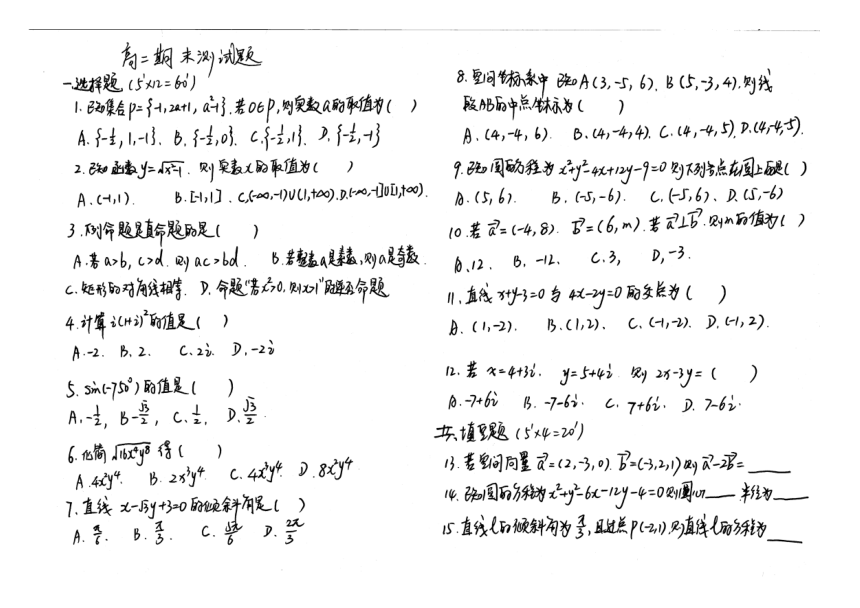 高二期末测试题
一、选择题 (5'×12=60')
1. 已知集合P={-1, 2a+1, a²-1}, 若0∈P, 则实数a的取值为( )
A. {-½, 1, -1}. B. {-½, 0}. C. {-½, 1}. D. {-½, -1}
2. 已知函数y=√x²-1. 则实数x的取值为( )
A. (-1, 1). B. [-1, 1]. C. (-∞, -1)∪(1, +∞). D. (-∞, -1]∪[1, +∞).
3. 下列命题是真命题的是( )
A. 若a>b, c>d. 则ac>bd. B. 若整数a是素数, 则a是奇数.
C. 矩形的对角线相等. D. 命题"若x²>0, 则x>1"的逆否命题
4. 计算i(1+i)²的值是( )
A. -2. B. 2. C. 2i. D. -2i
5. sin(-750°)的值是( )
A. -½, B. -√3/2, C. ½. D. √3/2
6. 化简√16x⁴y⁸得( )
A. 4x²y⁴. B. 2x²y⁴ C. 4x²y⁴ D. 8x²y⁴
7. 直线 x-√3y+3=0的倾斜角是( )
A. π/6. B. π/3. C. 5π/6 D. 2π/3
8. 空间坐标系中 已知A(3, -5, 6). B(5, -3, 4). 则线
段AB的中点坐标为( )
A. (4, -4, 6). B. (4, -4, 4). C. (4, -4, 5). D. (4, 4, 5).
9. 已知圆的方程为x²+y²-4x+12y-9=0则下列各点在圆上的是( )
A. (5, 6). B. (-5, -6). C. (-5, 6). D. (5, -6)
10. 若a=(-4, 8). b=(6, m). 若a⊥b. 则m的值为( )
A. 12. B. -12. C. 3, D. -3.
11. 直线x+y-3=0与4x-2y=0的交点为( )
A. (1, -2). B. (1, 2). C. (-1, -2). D. (-1, 2).
12. 若x=4+3i. y=5+4i 则 2x-3y=( )
A. -7+6i B. -7-6i. C. 7+6i. D. 7-6i.
二、填空题(5'×4=20')
13. 若空间向量a=(2, -3, 0). b=(-3, 2, 1)则a-2b=____
14. 已知圆的方程为x²+y²-6x-12y-4=0则圆心____半径为____
15. 直线l的倾斜角为π/3, 且过点P(-2, 1), 则直线l的方程为____